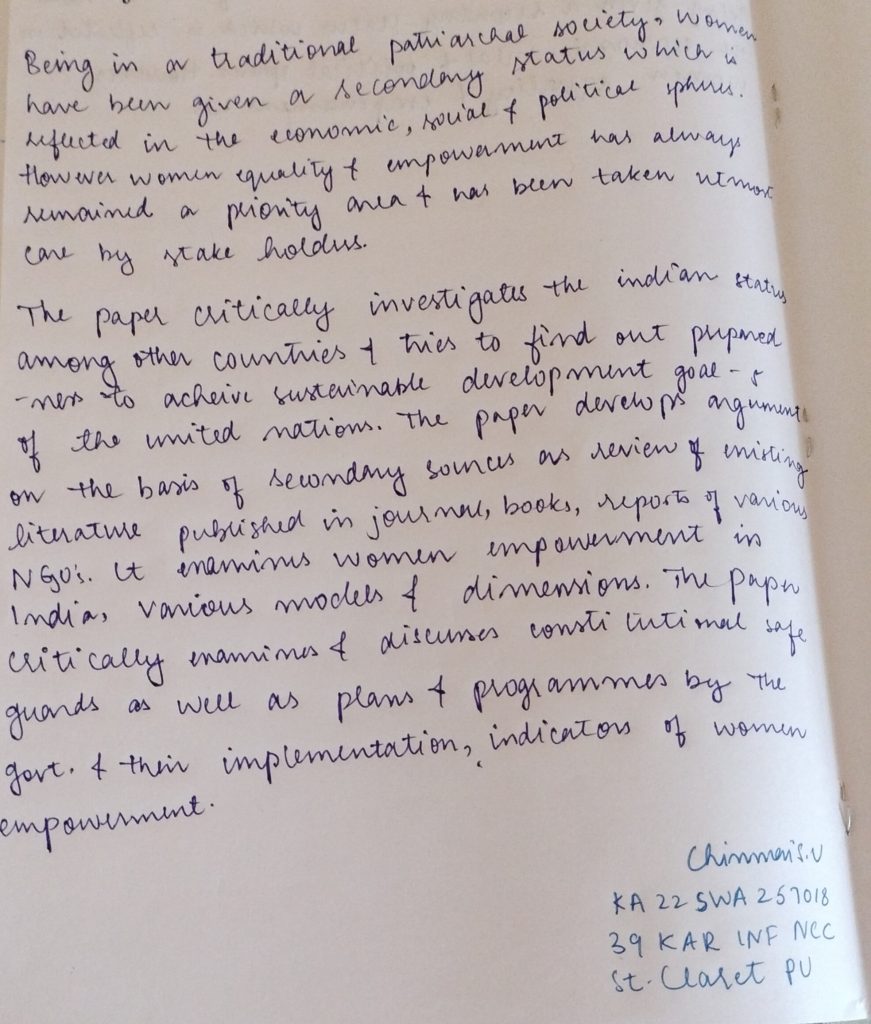 Being in a traditional patriarchal society, women
have been given a secondary status which is
reflected in the economic, social & political spheres.
However women equality & empowerment has always
remained a priority area & has been taken utmost
care by stake holders.
The paper critically investigates the indian status
among other countries & tries to find out prepared
-ness to acheive sustainable development goal-s
of the united nations. The paper develops arguments
on the basis of secondary sources as review of existing
literature published in journal, books, reports of various
NGO's. It examines women empowerment in
India, various models & dimensions. The paper
critically examines & discusses constitutional safe
guards as well as plans & programmes by the
govt. & their implementation, indicators of women
empowerment.
Chinmai S.V
KA 22 SWA 257018
39 KAR INF NCC
St. Claret PU